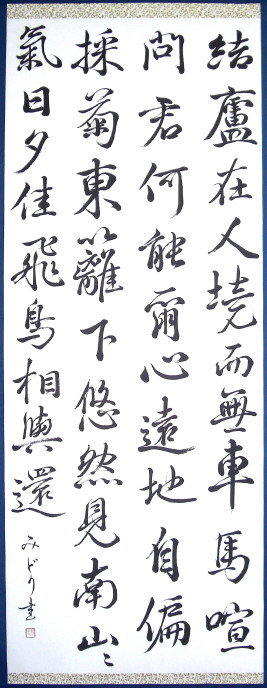 結廬在人境而無車馬喧
問君何能爾心遠地自偏
採菊東籬下悠然見南山〻
氣日夕佳飛鳥相與還
みどり書